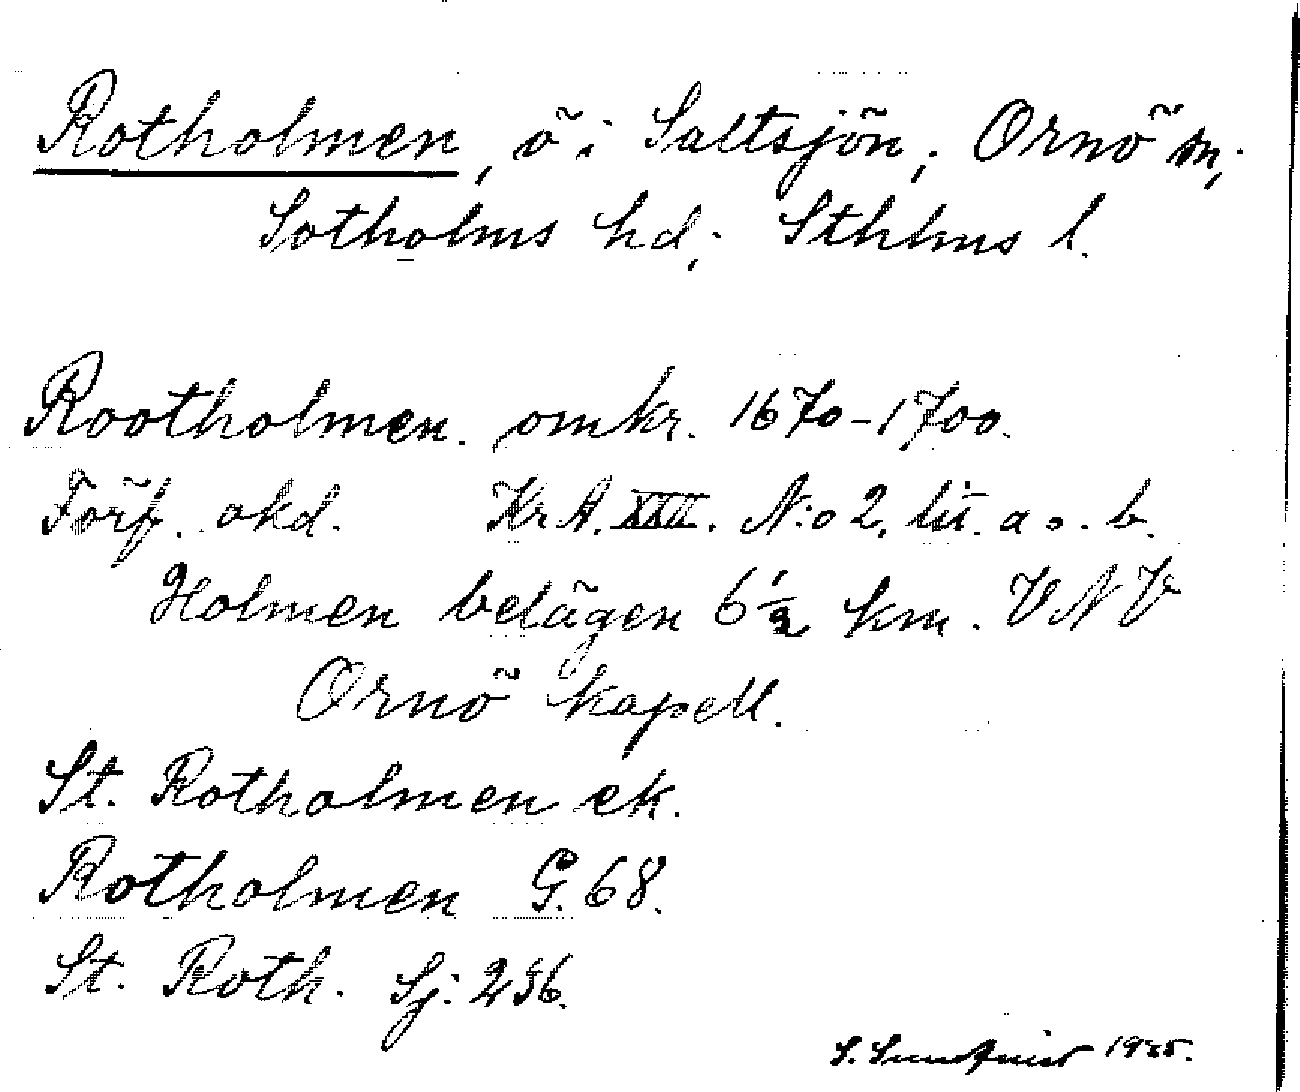 Rotholmen, ö i Saltsjön; Ornö sn;
Sotholms hd; Sthlms l.
Rootholmen. omkr. 1670-1700.
Förf. okd. Kr A. XXII. N:o 2, lit. a o. b.
Holmen belägen 6 1/2 km. VNV
Ornö kapell.
St. Rotholmen ek.
Rotholmen G. 68.
St. Roth. Sj: 236.
S.